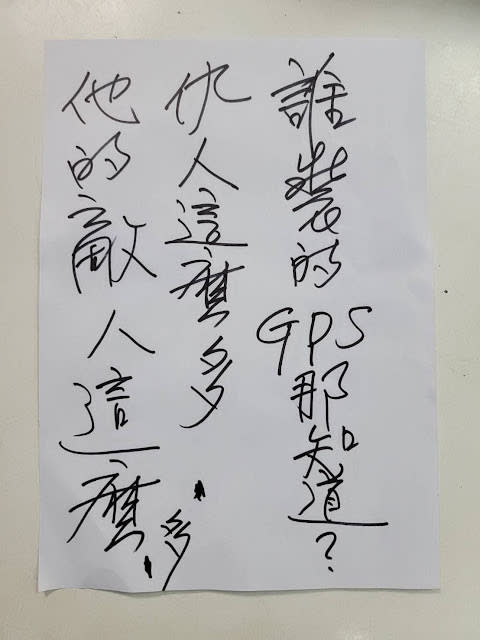 誰裝的GPS那知道？
仇人這麼多
他的敵人這麼多